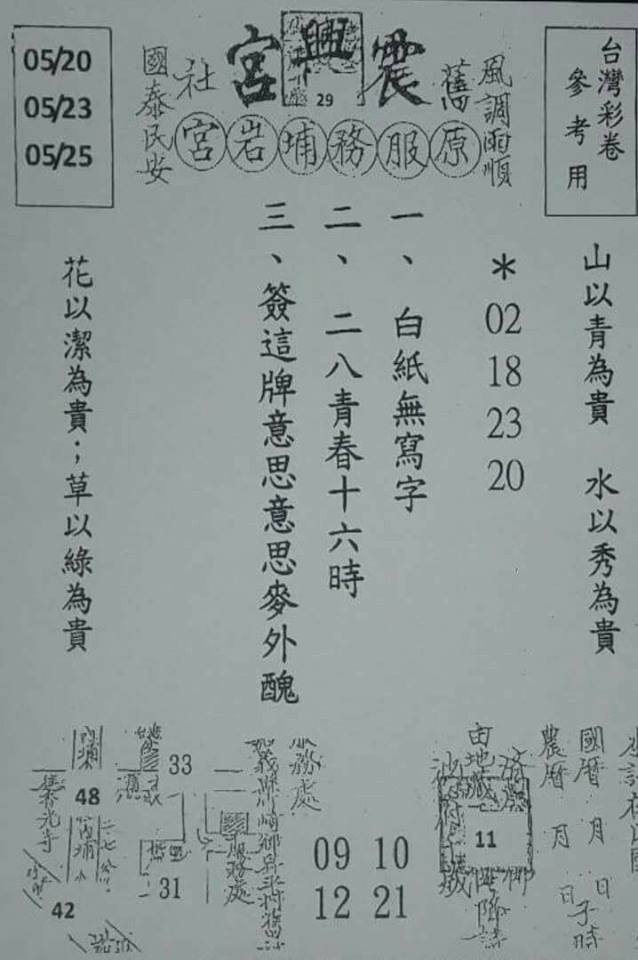 05/20
05/23
05/25
國泰民安
社
宮興震
29
舊
風調雨順
台灣彩卷
參考用
宮岩埔務服原
山以青為貴 水以秀為貴
*02 18 23 20
一、白紙無寫字
二、二八青春十六時
三、簽這牌意思意思麥外醜
花以潔為貴；草以綠為貴
國曆 月 日
農曆 月 日子時
11
服務處
09 10
12 21
33
31
48
42